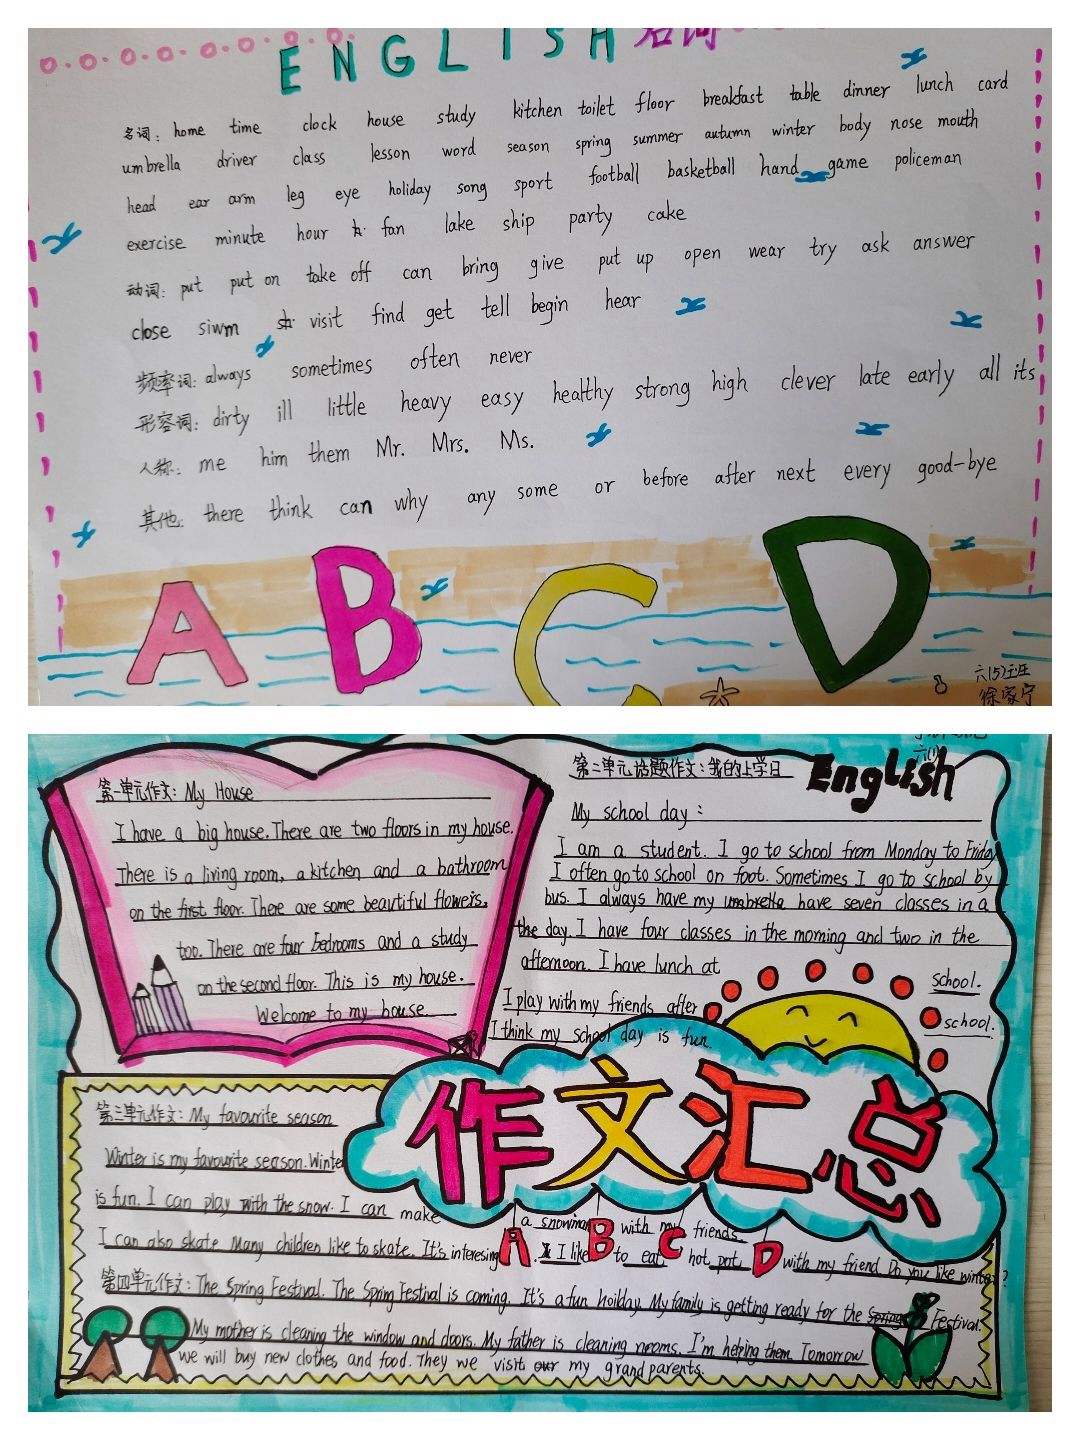 ENGLISH 名词
名词: home time clock house study kitchen toilet floor breakfast table dinner lunch card
umbrella driver class lesson word season spring summer autumn winter body nose mouth
head ear arm leg eye holiday song sport football basketball hand game policeman
exercise minute hour h fan lake ship party cake
动词: put put on take off can bring give put up open wear try ask answer
close siwm sh visit find get tell begin hear
频率词: always sometimes often never
形容词: dirty ill little heavy easy healthy strong high clever late early all its
人称: me him them Mr. Mrs. Ms.
其他: there think can why any some or before after next every good-bye
A B C D
六(5)班
徐家宁
第一单元作文: My House
I have a big house. There are two floors in my house.
There is a living room, a kitchen and a bathroom
on the first floor. There are some beautiful flowers,
too. There are four bedrooms and a study
on the second floor. This is my house.
Welcome to my house.
第二单元话题作文: 我的上学日
English
My school day:
I am a student. I go to school from Monday to Friday
I often go to school on foot. Sometimes I go to school by
bus. I always have my umbrella have seven classes in a
the day. I have four classes in the morning and two in the
afternoon. I have lunch at school.
I play with my friends after school.
I think my school day is fun.
作文汇总
第三单元作文: My favourite season
Winter is my favourite season. Winter
is fun. I can play with the snow. I can make a snowman with my friends
I can also skate Many children like to skate. It's interesing. I like to eat hot pot with my friend Do you like winter?
A B C D
第四单元作文: The Spring Festival. The Spring Festival is coming. It's a fun hoilday. My family is getting ready for the Spring Festival.
My mother is cleaning the window and doors. My father is cleaning rooms. I'm helping them. Tomorrow
we will buy new clothes and food. They we visit our my grandparents.